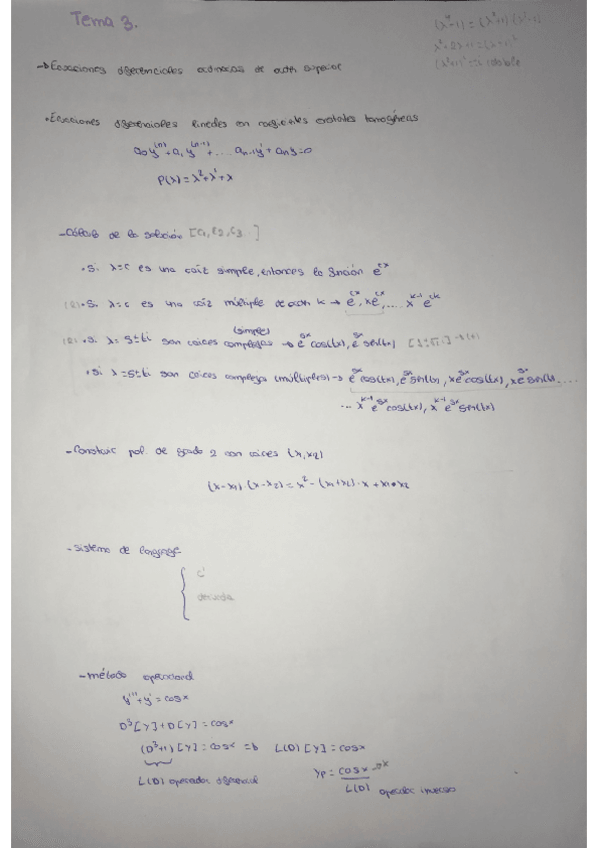 Tema 3.
(λ⁴-1) = (λ²+1)·(λ²-1)
(λ²+1)² = ±i doble
→ Ecuaciones diferenciales ordinarias de orden superior
• Ecuaciones diferenciales lineales con coeficientes constantes homogéneas
a₀y⁽ⁿ⁾ + a₁y⁽ⁿ⁻¹⁾ + .... aₙ₋₁y' + aₙy = 0
P(λ) = λ² + λ¹ + λ
- Cálculo de la solución [C₁, C₂, C₃ ]
• Si λ=c es una raíz simple, entonces la función e^cx
(2) • Si λ=c es una raíz múltiple de orden k → e^cx, xe^cx, .... x^k-1 e^cx
(2) • Si λ = s±ti son raíces complejas (simples) → e^sx cos(tx), e^sx sen(tx)
• Si λ=s±ti son raíces complejas (múltiples) → e^sx cos(tx), e^sx sen(tx), xe^sx cos(tx), xe^sx sen(tx) ....
... x^k-1 e^sx cos(tx), x^k-1 e^sx sen(tx)
- Construir pol. de grado 2 con raíces (x₁, x₂)
(x-x₁)·(x-x₂) = x² - (x₁+x₂)·x + x₁·x₂
- Sistema de Lagrange
{ C'
derivada
- Método operacional
y''' + y' = cosx
D³[y] + D[y] = cosx
(D³+1)[y] = cosx => L(D)[y] = cosx
L(D) operador diferencial
yp = cosx
L(D) operador inverso